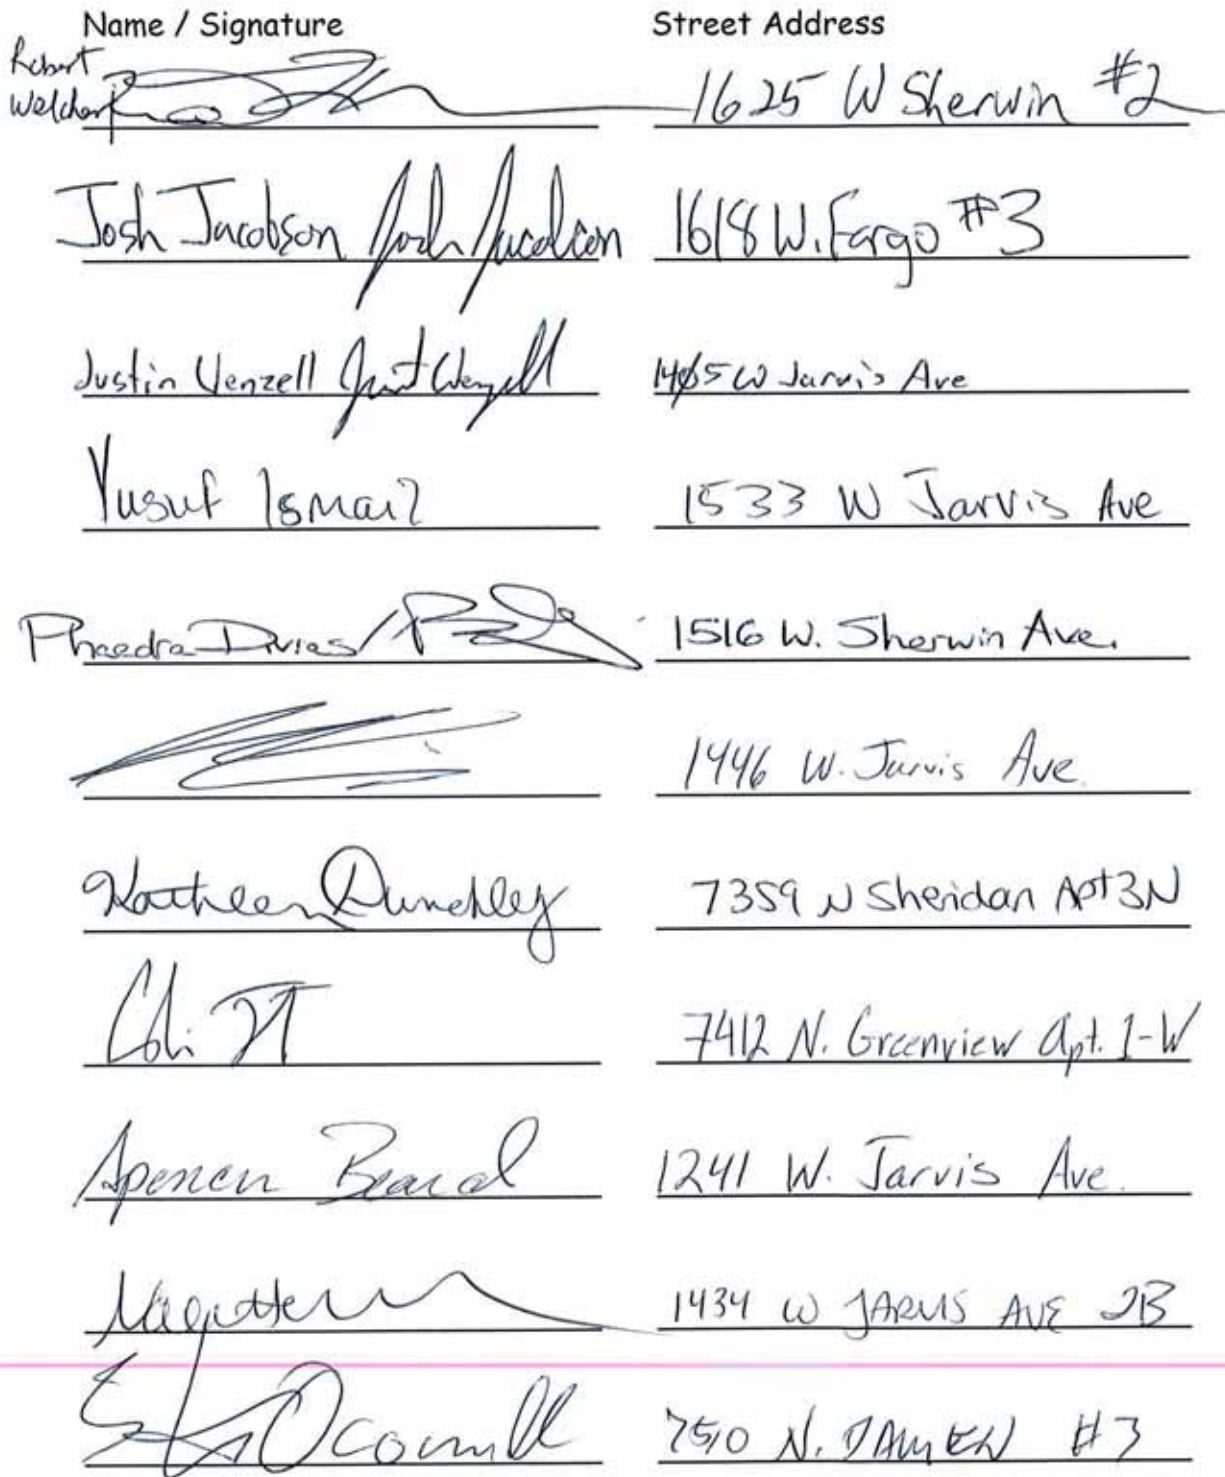 Name / Signature Street Address
Robert
1625 W Sherwin #2
Josh Jacobson Josh Jacobson 1618 W. Fargo #3
Justin Venzell 1405 W Jarvis Ave
Yusuf Ismail 1533 W Jarvis Ave
Phaedra Divras / 1516 W. Sherwin Ave.
1446 W. Jarvis Ave.
Kathleen Dunchley 7359 N Sheridan Apt 3N
7412 N. Greenview Apt. 1-W
Spencer Beard 1241 W. Jarvis Ave.
1434 W JARVIS AVE 2B
7510 N. DAMEN #3